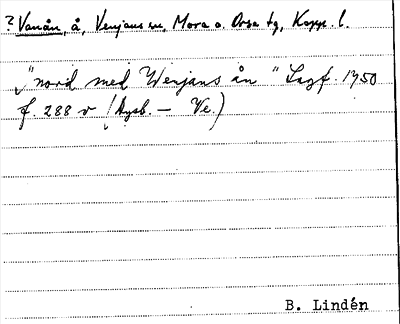 ? Vanån, å, Venjans sn, Mora o. Orsa tg, Kopp. l.
"nord med Wenjans ån" Lagf. 1750
f. 288 v (hysb. – Ve.)
B. Lindén